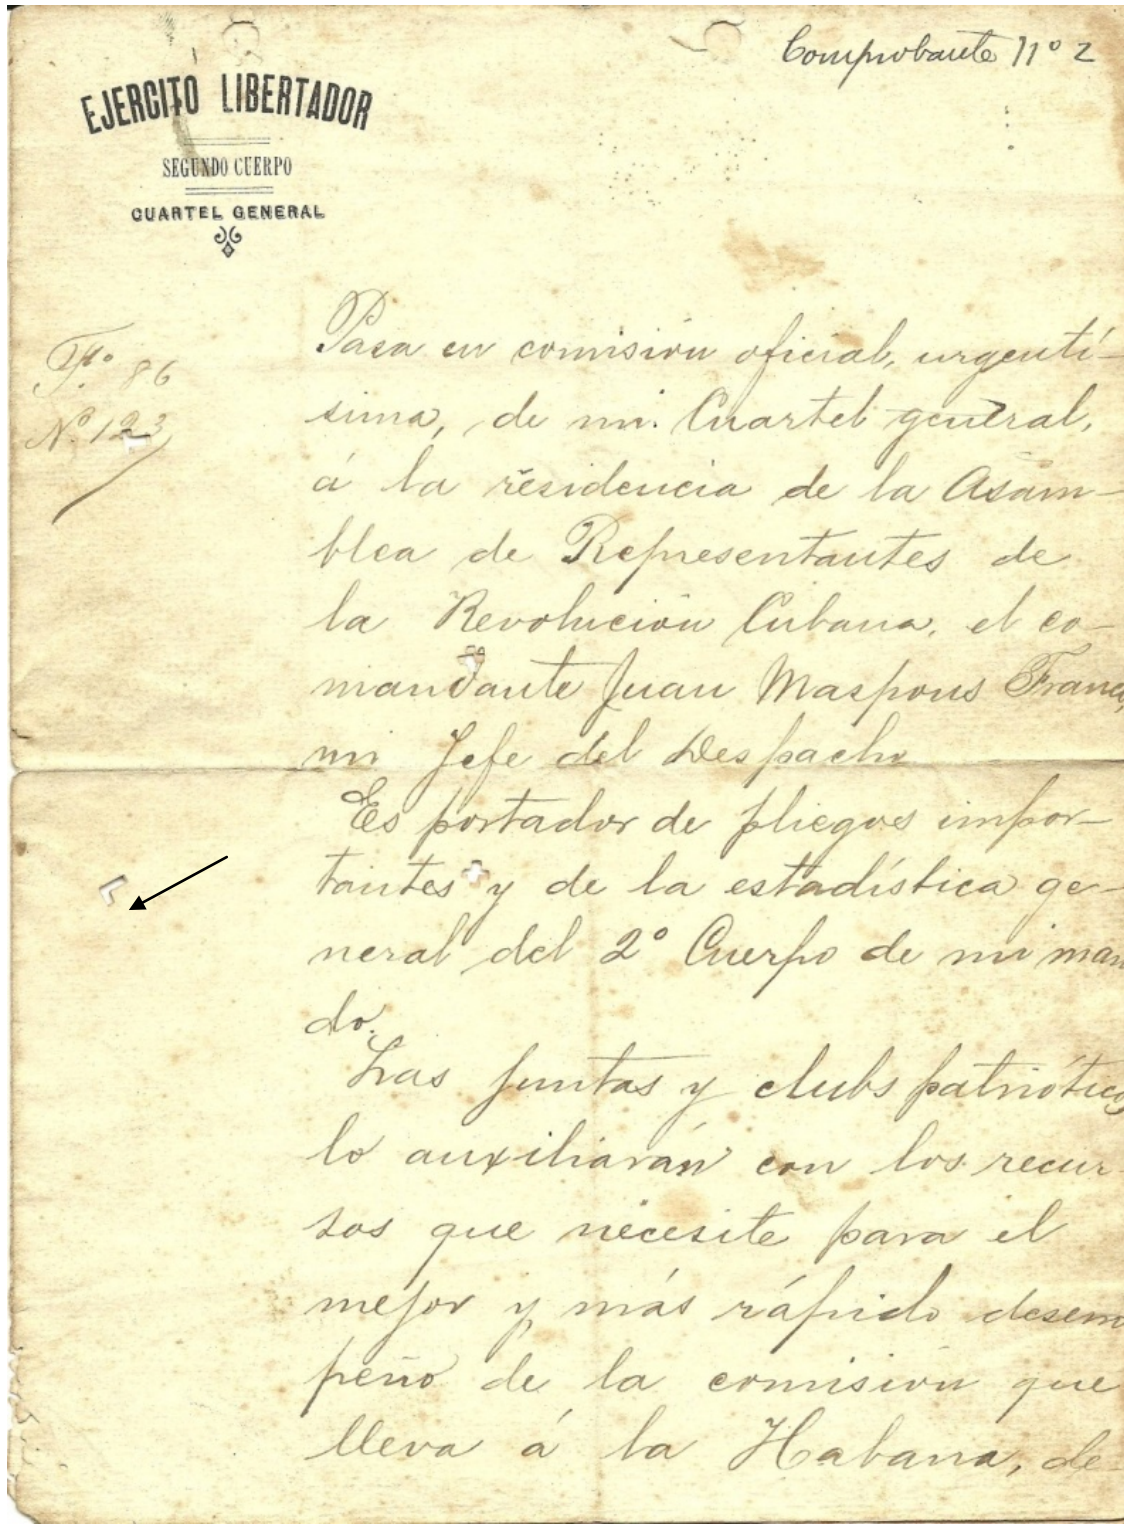 Comprobante Nº 2
EJERCITO LIBERTADOR
SEGUNDO CUERPO
CUARTEL GENERAL
Fº. 86
Nº. 123
Pasa en comisión oficial, urgentí-
sima, de mi Cuartel general,
á la residencia de la Asam-
blea de Representantes de
la Revolución Cubana, el co-
mandante Juan Maspons Franco,
mi Jefe del Despacho
Es portador de pliegos impor-
tantes y de la estadística ge-
neral del 2º Cuerpo de mi man
do.
Las juntas y clubs patriótico
lo auxiliarán con los recur
sos que necesite para el
mejor y más rápido desem
peño de la comisión que
lleva á la Habana, de-